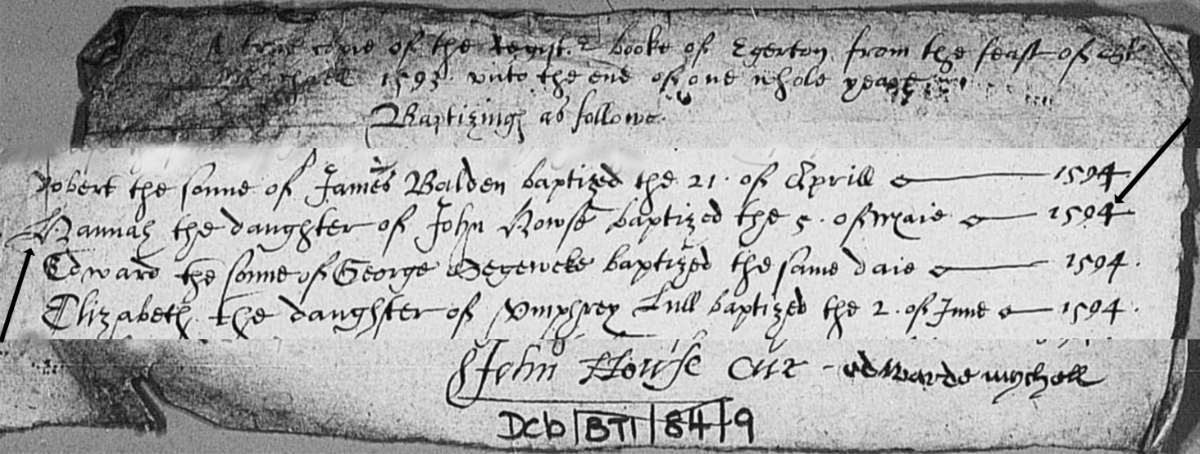 A true copie of the Regist. booke of Egerton from the feast of
Michaell 1593 unto the end of one whole yeare
Baptizing as followe.
Robert the sonne of James Balden baptized the 21. of Aprill 1594
Hannah the daughter of John Howse baptized the 5. of Maie 1594
Edward the sonne of George baptized the same daie 1594.
Elizabeth the daughter of Umphrey Lull baptized the 2. of June 1594.
John Howse Cur edwarde mychell
DCb/BT1/84/9